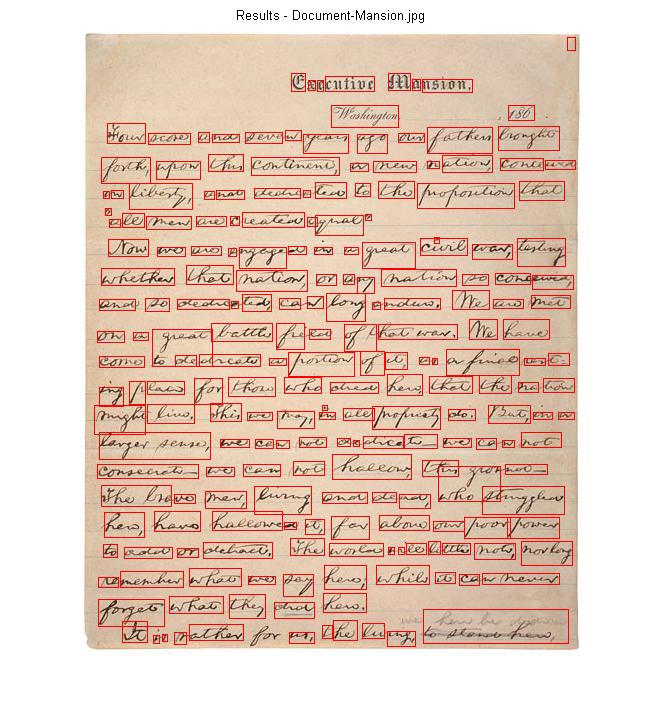 Results - Document-Mansion.jpg
Executive Mansion,
Washington, , 186 .
Four score and seven years ago our fathers brought
forth, upon this continent, a new nation, conceived
in liberty, and dedicated to the proposition that
all men are created equal
Now we are engaged in a great civil war, testing
whether that nation, or any nation so conceived,
and so dedicated, can long endure. We are met
on a great battle field of that war. We have
come to dedicate a portion of it, as a final rest-
ing place for those who died here, that the nation
might live. This we may, in all propriety do. But, in a
larger sense, we can not dedicate — we can not
consecrate — we can not hallow, this ground —
The brave men, living and dead, who struggled
here, have hallowed it, far above our poor power
to add or detract. The world will little note, nor long
remember what we say here; while it can never
forget what they did here.
It is rather for us, the living, to stand here,
we here be dedica